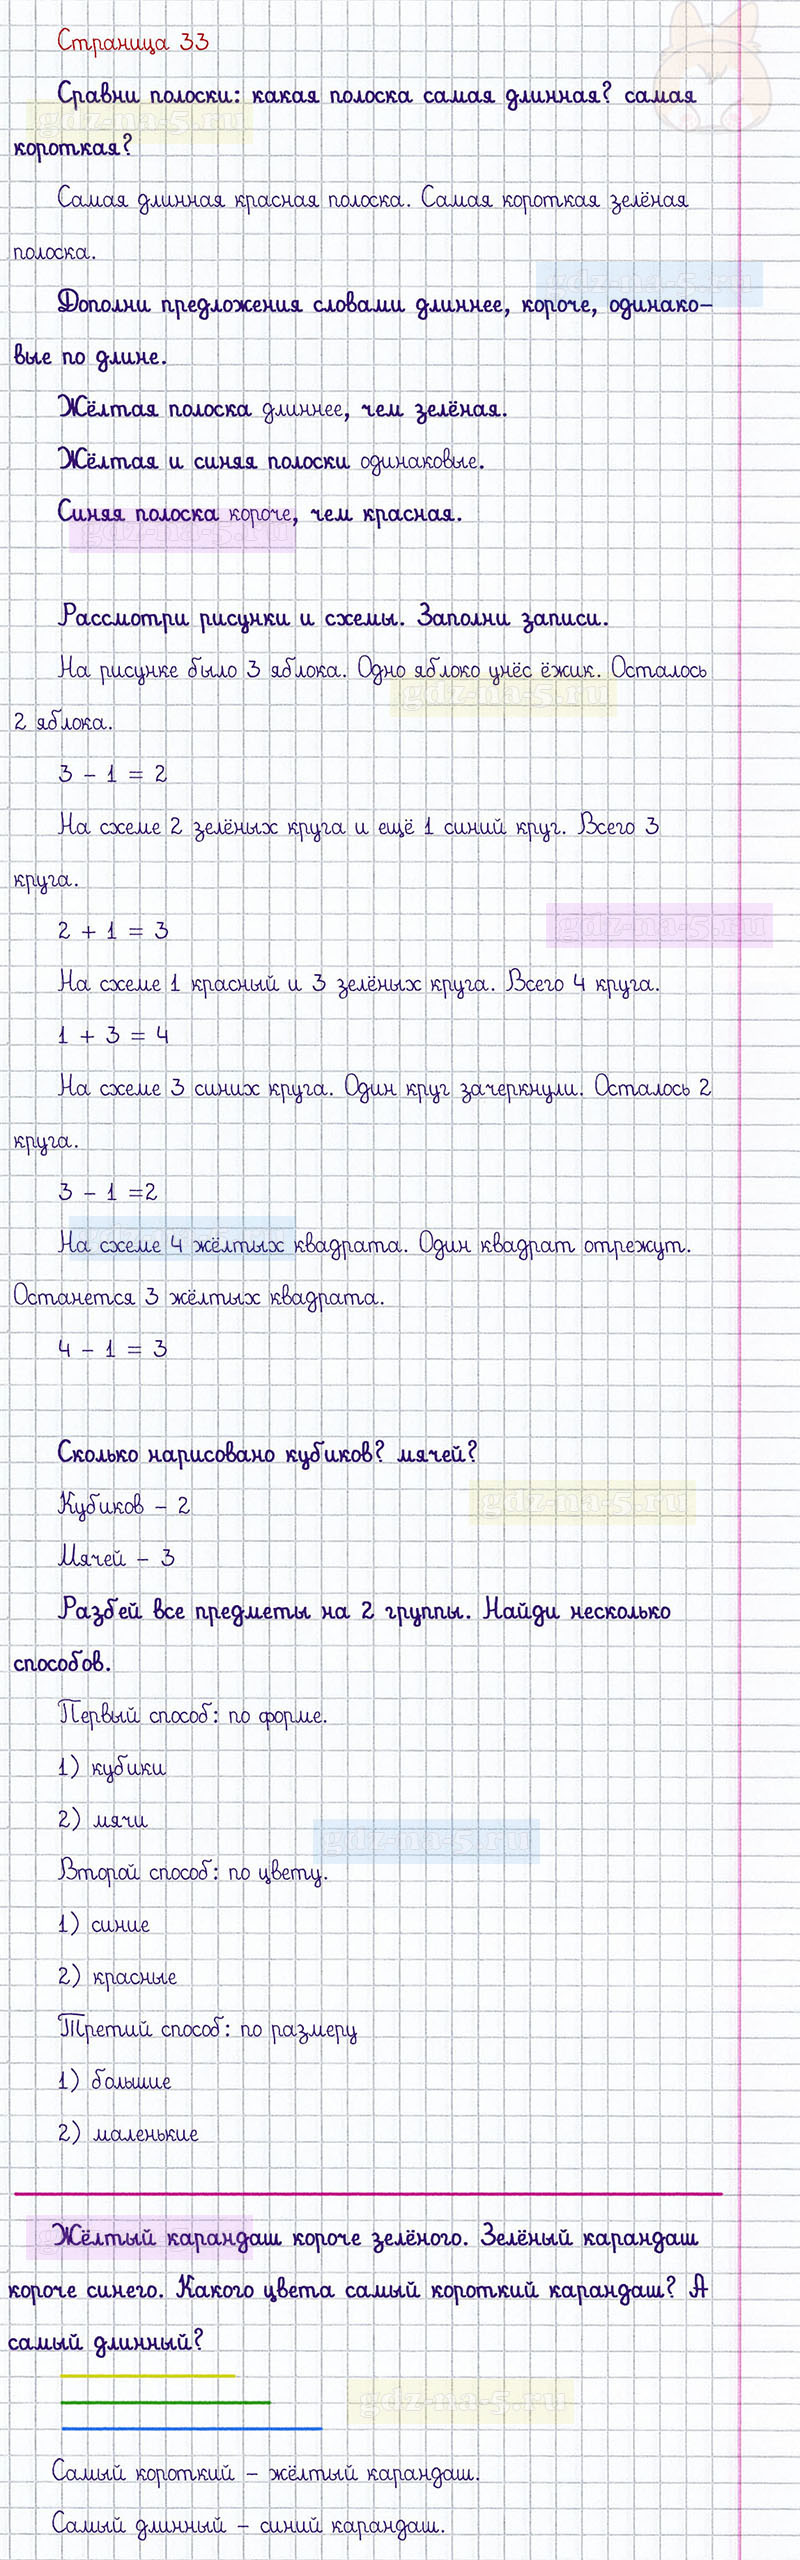 Страница 33
Сравни полоски: какая полоска самая длинная? самая
короткая?
gdz-na-5.ru
Самая длинная красная полоска. Самая короткая зелёная
полоска.
gdz-na-5.ru
Дополни предложения словами длиннее, короче, одинако-
вые по длине.
Жёлтая полоска длиннее, чем зелёная.
Жёлтая и синяя полоски одинаковые.
Синяя полоска короче, чем красная.
gdz-na-5.ru
Рассмотри рисунки и схемы. Заполни записи.
На рисунке было 3 яблока. Одно яблоко унёс ёжик. Осталось
gdz-na-5.ru
2 яблока.
3 - 1 = 2
На схеме 2 зелёных круга и ещё 1 синий круг. Всего 3
круга.
2 + 1 = 3
gdz-na-5.ru
На схеме 1 красный и 3 зелёных круга. Всего 4 круга.
1 + 3 = 4
На схеме 3 синих круга. Один круг зачеркнули. Осталось 2
круга.
3 - 1 =2
На схеме 4 жёлтых квадрата. Один квадрат отрежут.
Останется 3 жёлтых квадрата.
4 - 1 = 3
Сколько нарисовано кубиков? мячей?
Кубиков - 2
gdz-na-5.ru
Мячей - 3
Разбей все предметы на 2 группы. Найди несколько
способов.
Первый способ: по форме.
1) кубики
2) мячи
gdz-na-5.ru
Второй способ: по цвету.
1) синие
2) красные
Третий способ: по размеру
1) большие
2) маленькие
Жёлтый карандаш короче зелёного. Зелёный карандаш
короче синего. Какого цвета самый короткий карандаш? А
самый длинный?
gdz-na-5.ru
Самый короткий - жёлтый карандаш.
Самый длинный - синий карандаш.